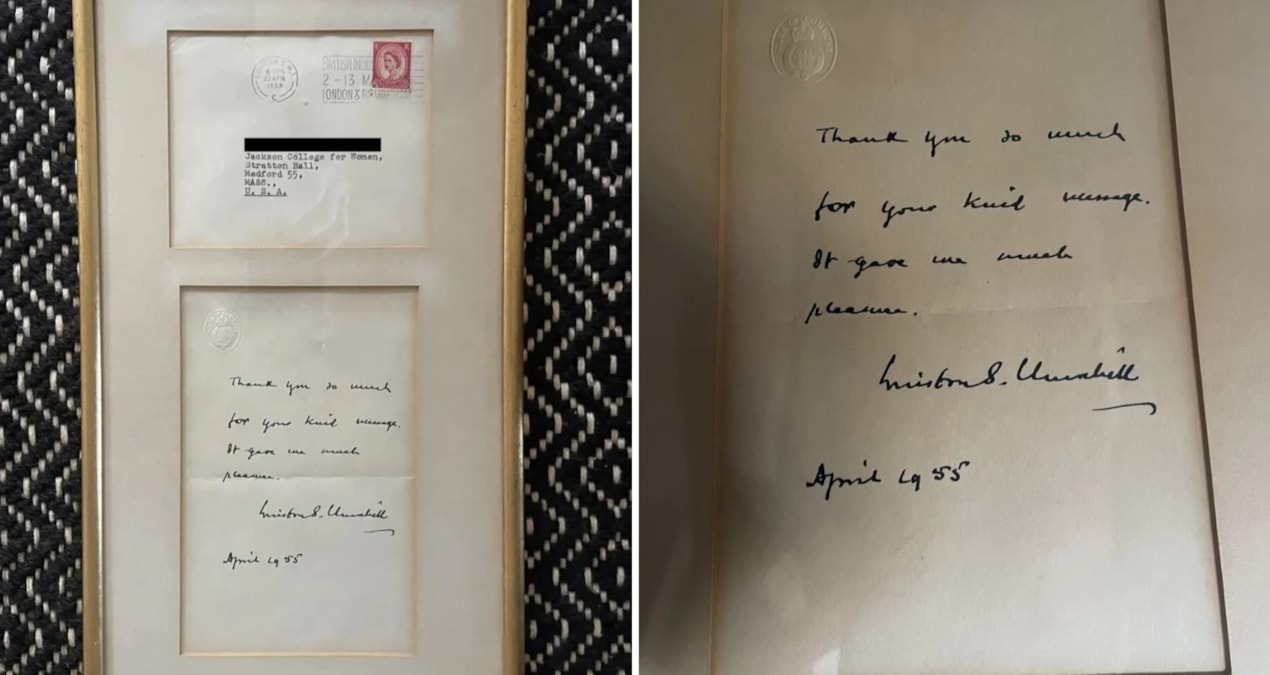 LONDON. S.W.1.
6 PM
22 APR
1955
C
BRITISH INDU
2 - 13 M
LONDON &
Jackson College for Women,
Stratton Hall,
Medford 55,
MASS.,
U. S. A.
Thank you so much
for your kind message.
It gave me much
pleasure.
Winston S. Churchill
April 1955
Thank you so much
for your kind message.
It gave me much
pleasure.
Winston S. Churchill
April 1955